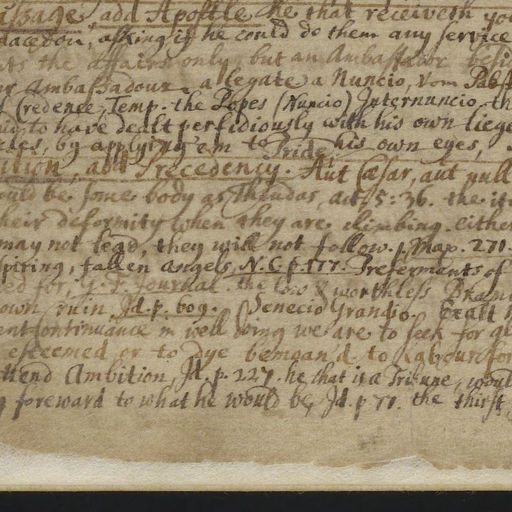 assage, add Apostle he that receiveth you
Macedon, asking if he could do them any service
the affairs only, but an Ambassador besi
Ambassadour, a legate a Nuncio, vom Pabst
Credence, Temp. the Popes (Nuncio) Internuncio. th
to have dealt perfidiously with his own liege
cles, by applying em to his own eyes,
Pride.
ition, add Precedency. Aut Cæsar, aut null
ould be some body as Theudas, act. 5: 36. the
their deformity when they are climbing. either
may not lead, they will not follow. Map. 271.
spiring, fallen angels, N.C. p. 177. Preferments of
ed for, Journal the worthless
own ruin, Jd. p. 609. Senecio Grandio. Exalt
ent continuance in well doing we are to seek for
esteemed or to dye bemoan'd to labour for
attend Ambition, Jd. p. 227. he that is a Tribune, woul
g foreward to what he would be, Jd. p 71. the thirst